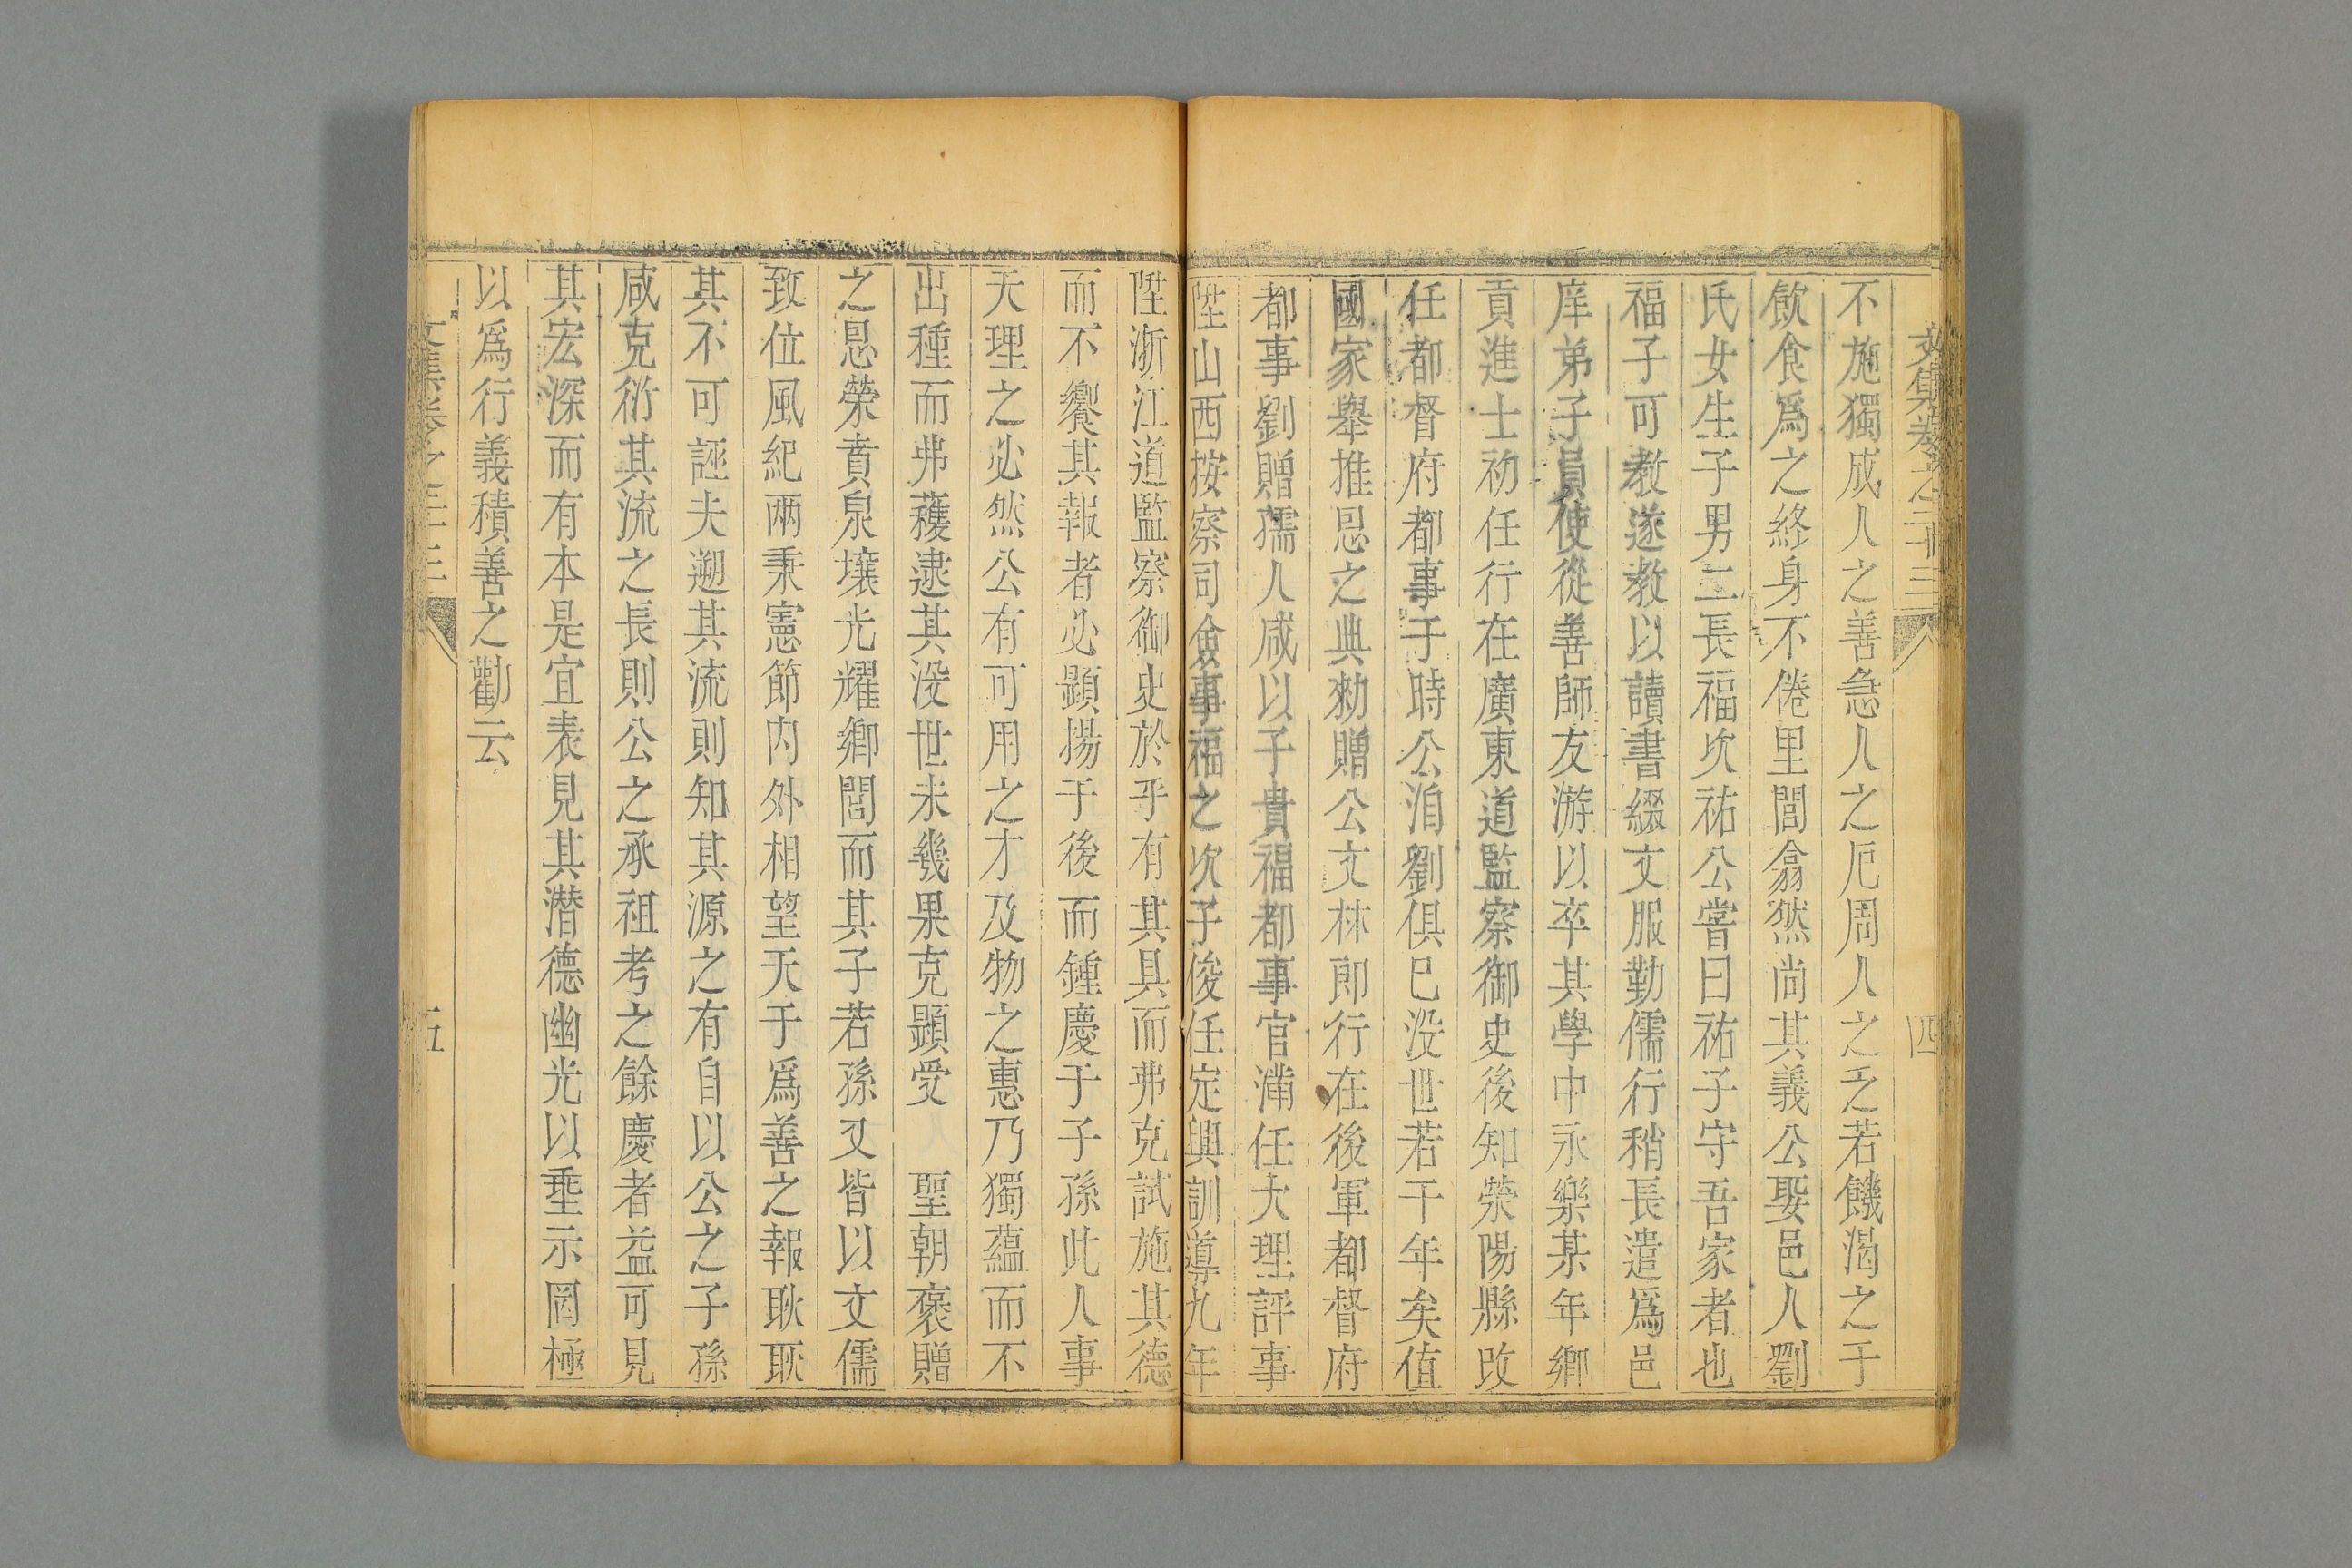 文集卷之二十三
四
不施獨成人之善急人之厄周人之乏若饑渴之于
飲食爲之終身不倦里閭翕然尚其義公娶邑人劉
氏女生子男二長福次祐公嘗曰祐子守吾家者也
福子可教遂教以讀書綴文服勤儒行稍長遣爲邑
庠弟子員使從善師友游以卒其學中永樂某年鄉
貢進士初任行在廣東道監察御史後知滎陽縣改
任都督府都事于時公洎劉俱已没世若干年矣值
國家舉推恩之典勑贈公文林郎行在後軍都督府
都事劉贈孺人咸以子貴福都事官滿任大理評事
陞山西按察司僉事福之次子俊任定興訓導九年
陞浙江道監察御史於乎有其具而弗克試施其德
而不饗其報者必顯揚于後而鍾慶于子孫此人事
天理之必然公有可用之才及物之惠乃獨蘊而不
出種而弗穫逮其没世未幾果克顯受　聖朝褒贈
之恩榮賁泉壤光耀鄉閭而其子若孫又皆以文儒
致位風紀兩秉憲節内外相望天于爲善之報耿耿
其不可誣夫遡其流則知其源之有自以公之子孫
咸克衍其流之長則公之承祖考之餘慶者益可見
其宏深而有本是宜表見其潛德幽光以垂示罔極
以爲行義積善之勸云
文集卷之二十三
五